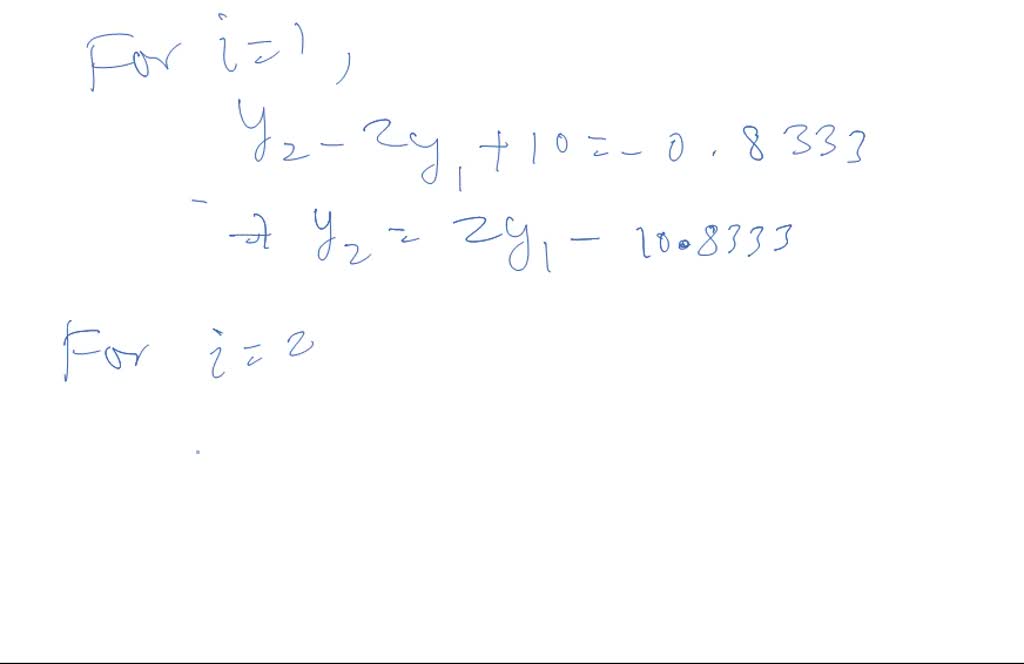 For i=1,
y₂ - 2y₁ + 10 = - 0.8333
→ y₂ = 2y₁ - 10.8333
For i=2